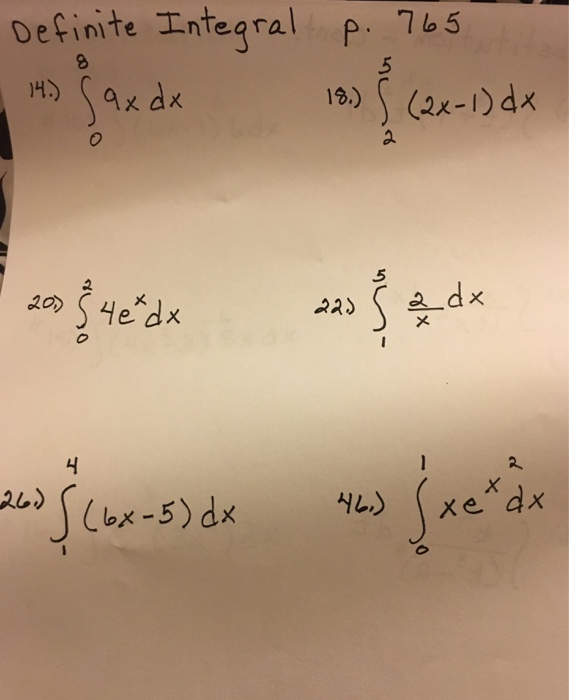 Definite Integral p. 765
14.) ∫₀⁸ 9x dx
18.) ∫₂⁵ (2x-1) dx
20.) ∫₀² 4eˣ dx
22.) ∫₁⁵ 2/x dx
26.) ∫₁⁴ (6x-5) dx
46.) ∫₀¹ xe^x² dx